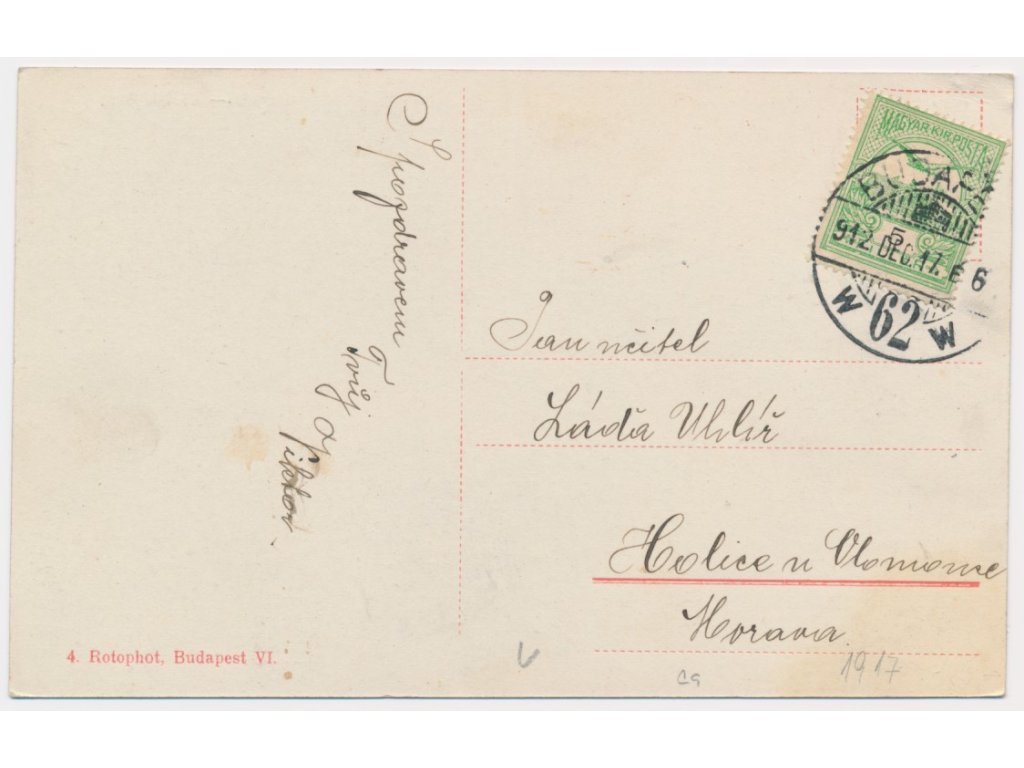 S pozdravem
Tvůj
Viktor.
MAGYAR KIR. POSTA
5
912. DEC. 17. 6
62
W W
Pan učitel
Láďa Uhlíř
Holice u Olomouce
Morava
4. Rotophot, Budapest VI.
1917